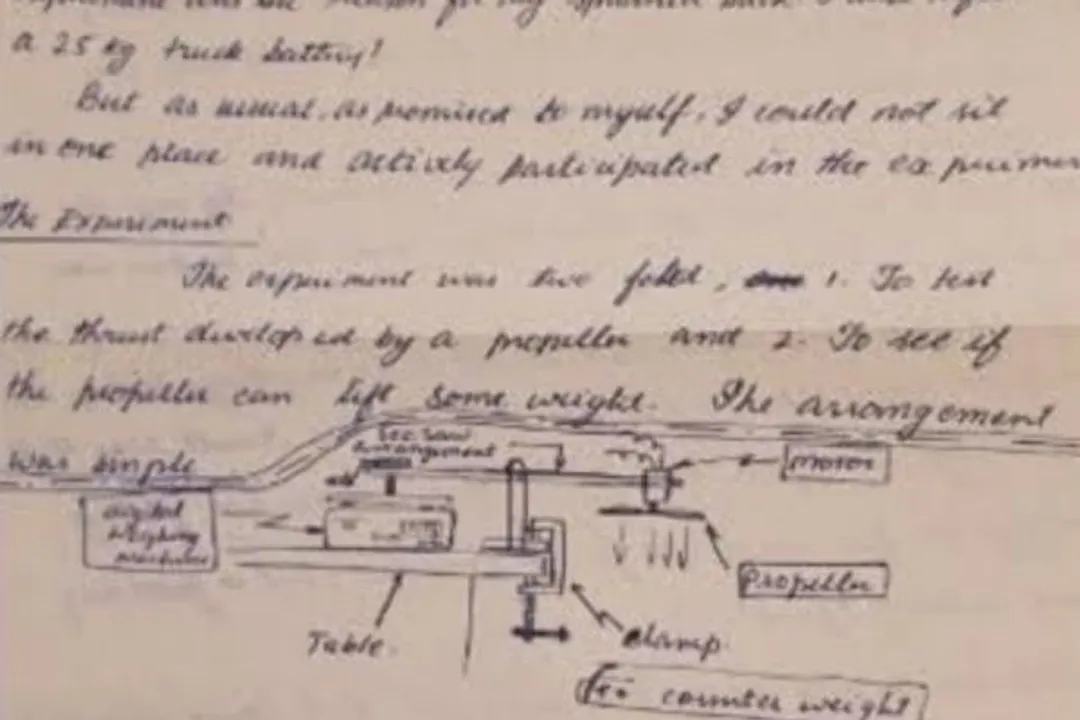 a 25 kg truck battery!
But as usual, as promised to myself, I could not sit
in one place and actively participated in the experimen
The Experiment
The experiment was two fold, 1. To test
the thrust developed by a propeller and 2. To see if
the propeller can lift some weight. The arrangement
was simple
See saw
arrangement
motor
digital
weighing
machine
propeller
Table.
clamp.
counter weight